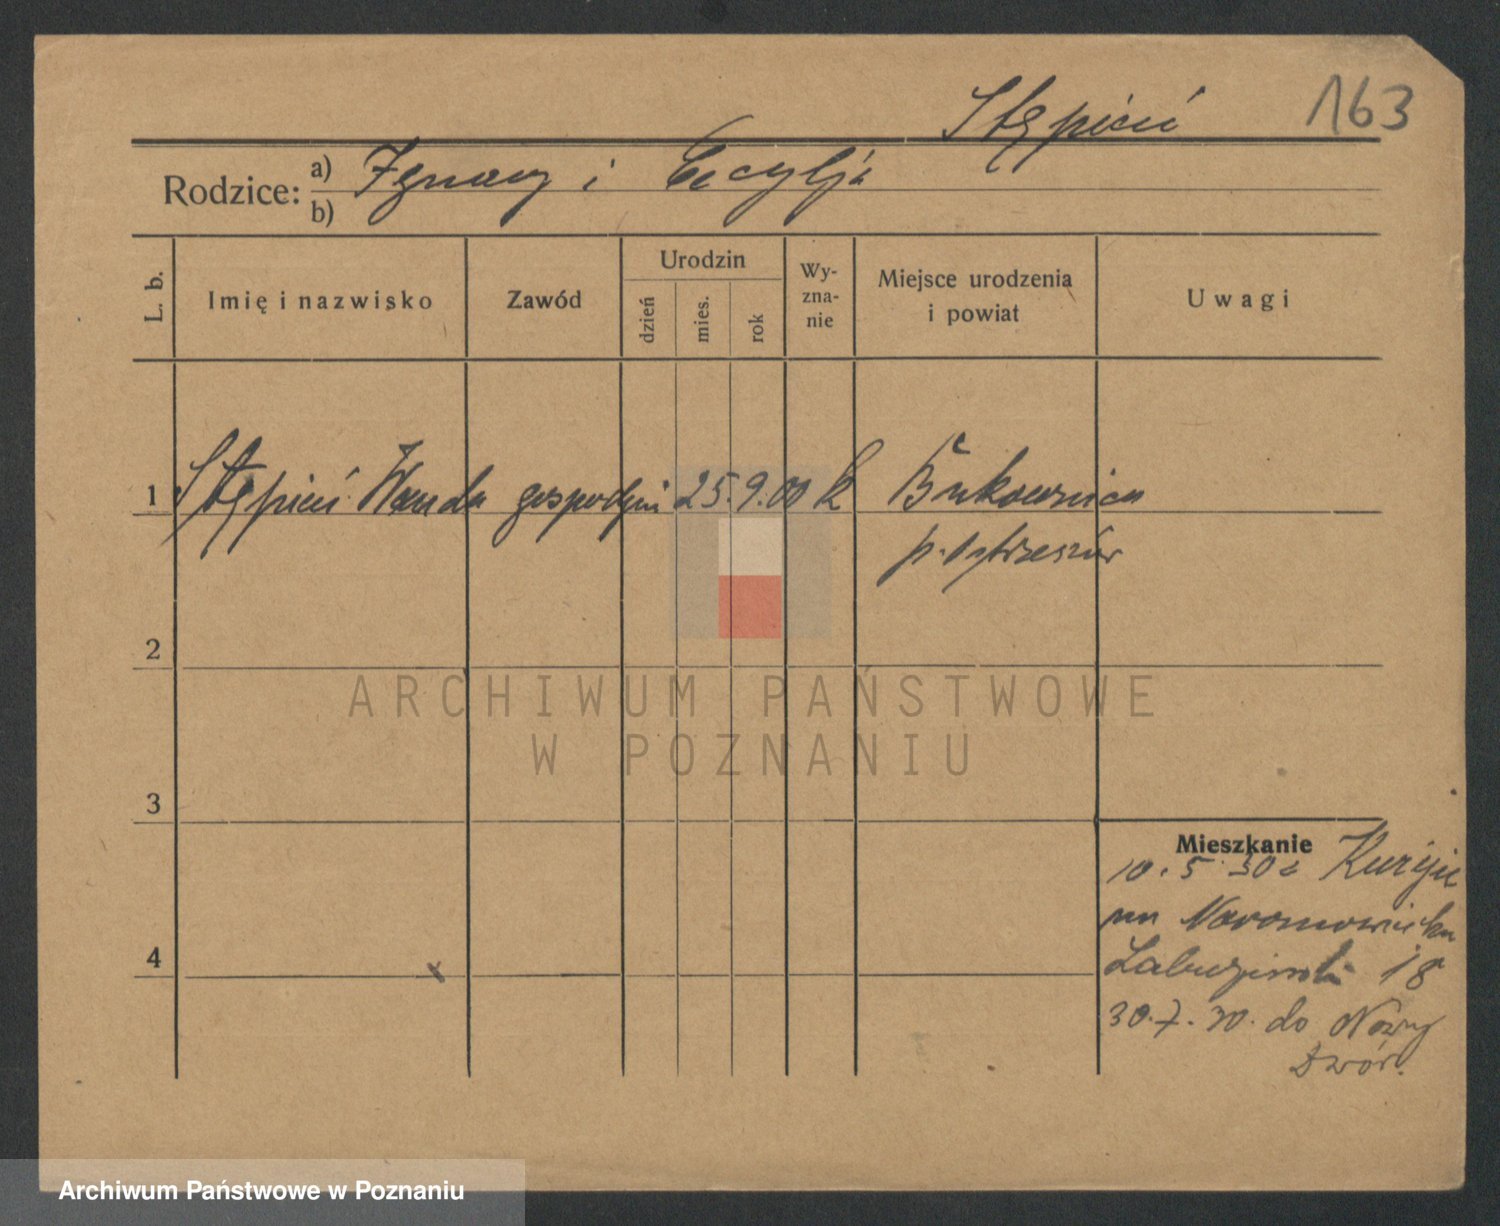 163
Stępień
Rodzice: a) Ignacy i Cecylja
b)
L. b.
Imię i nazwisko
Zawód
Urodzin
dzień
mies.
rok
Wy-
zna-
nie
Miejsce urodzenia
i powiat
Uwagi
1 Stępień Wanda gospodyni 25. 9. 00 k Bukownica
p. Ostrzeszów
2
ARCHIWUM PAŃSTWOWE
W POZNANIU
3
Mieszkanie
10. 5. 30 z
na Naramowicka
18
4
30. 7. 30. do Nowy
Dwór.
Archiwum Państwowe w Poznaniu